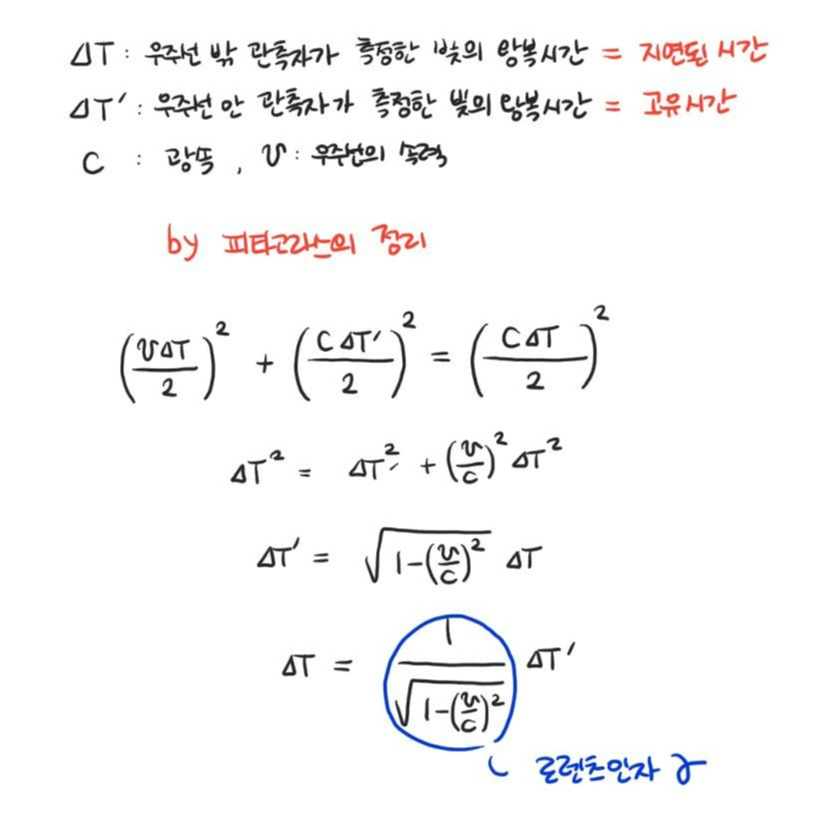 ΔT : 우주선 밖 관측자가 측정한 빛의 왕복시간 = 지연된 시간
ΔT' : 우주선 안 관측자가 측정한 빛의 왕복시간 = 고유시간
C : 광속, v : 우주선의 속력
by 피타고라스의 정리
(vΔT/2)² + (CΔT'/2)² = (CΔT/2)²
ΔT² = ΔT'² + (v/c)² ΔT²
ΔT' = √(1-(v/c)²) ΔT
ΔT = 1/√(1-(v/c)²) ΔT'
로렌츠인자 γ